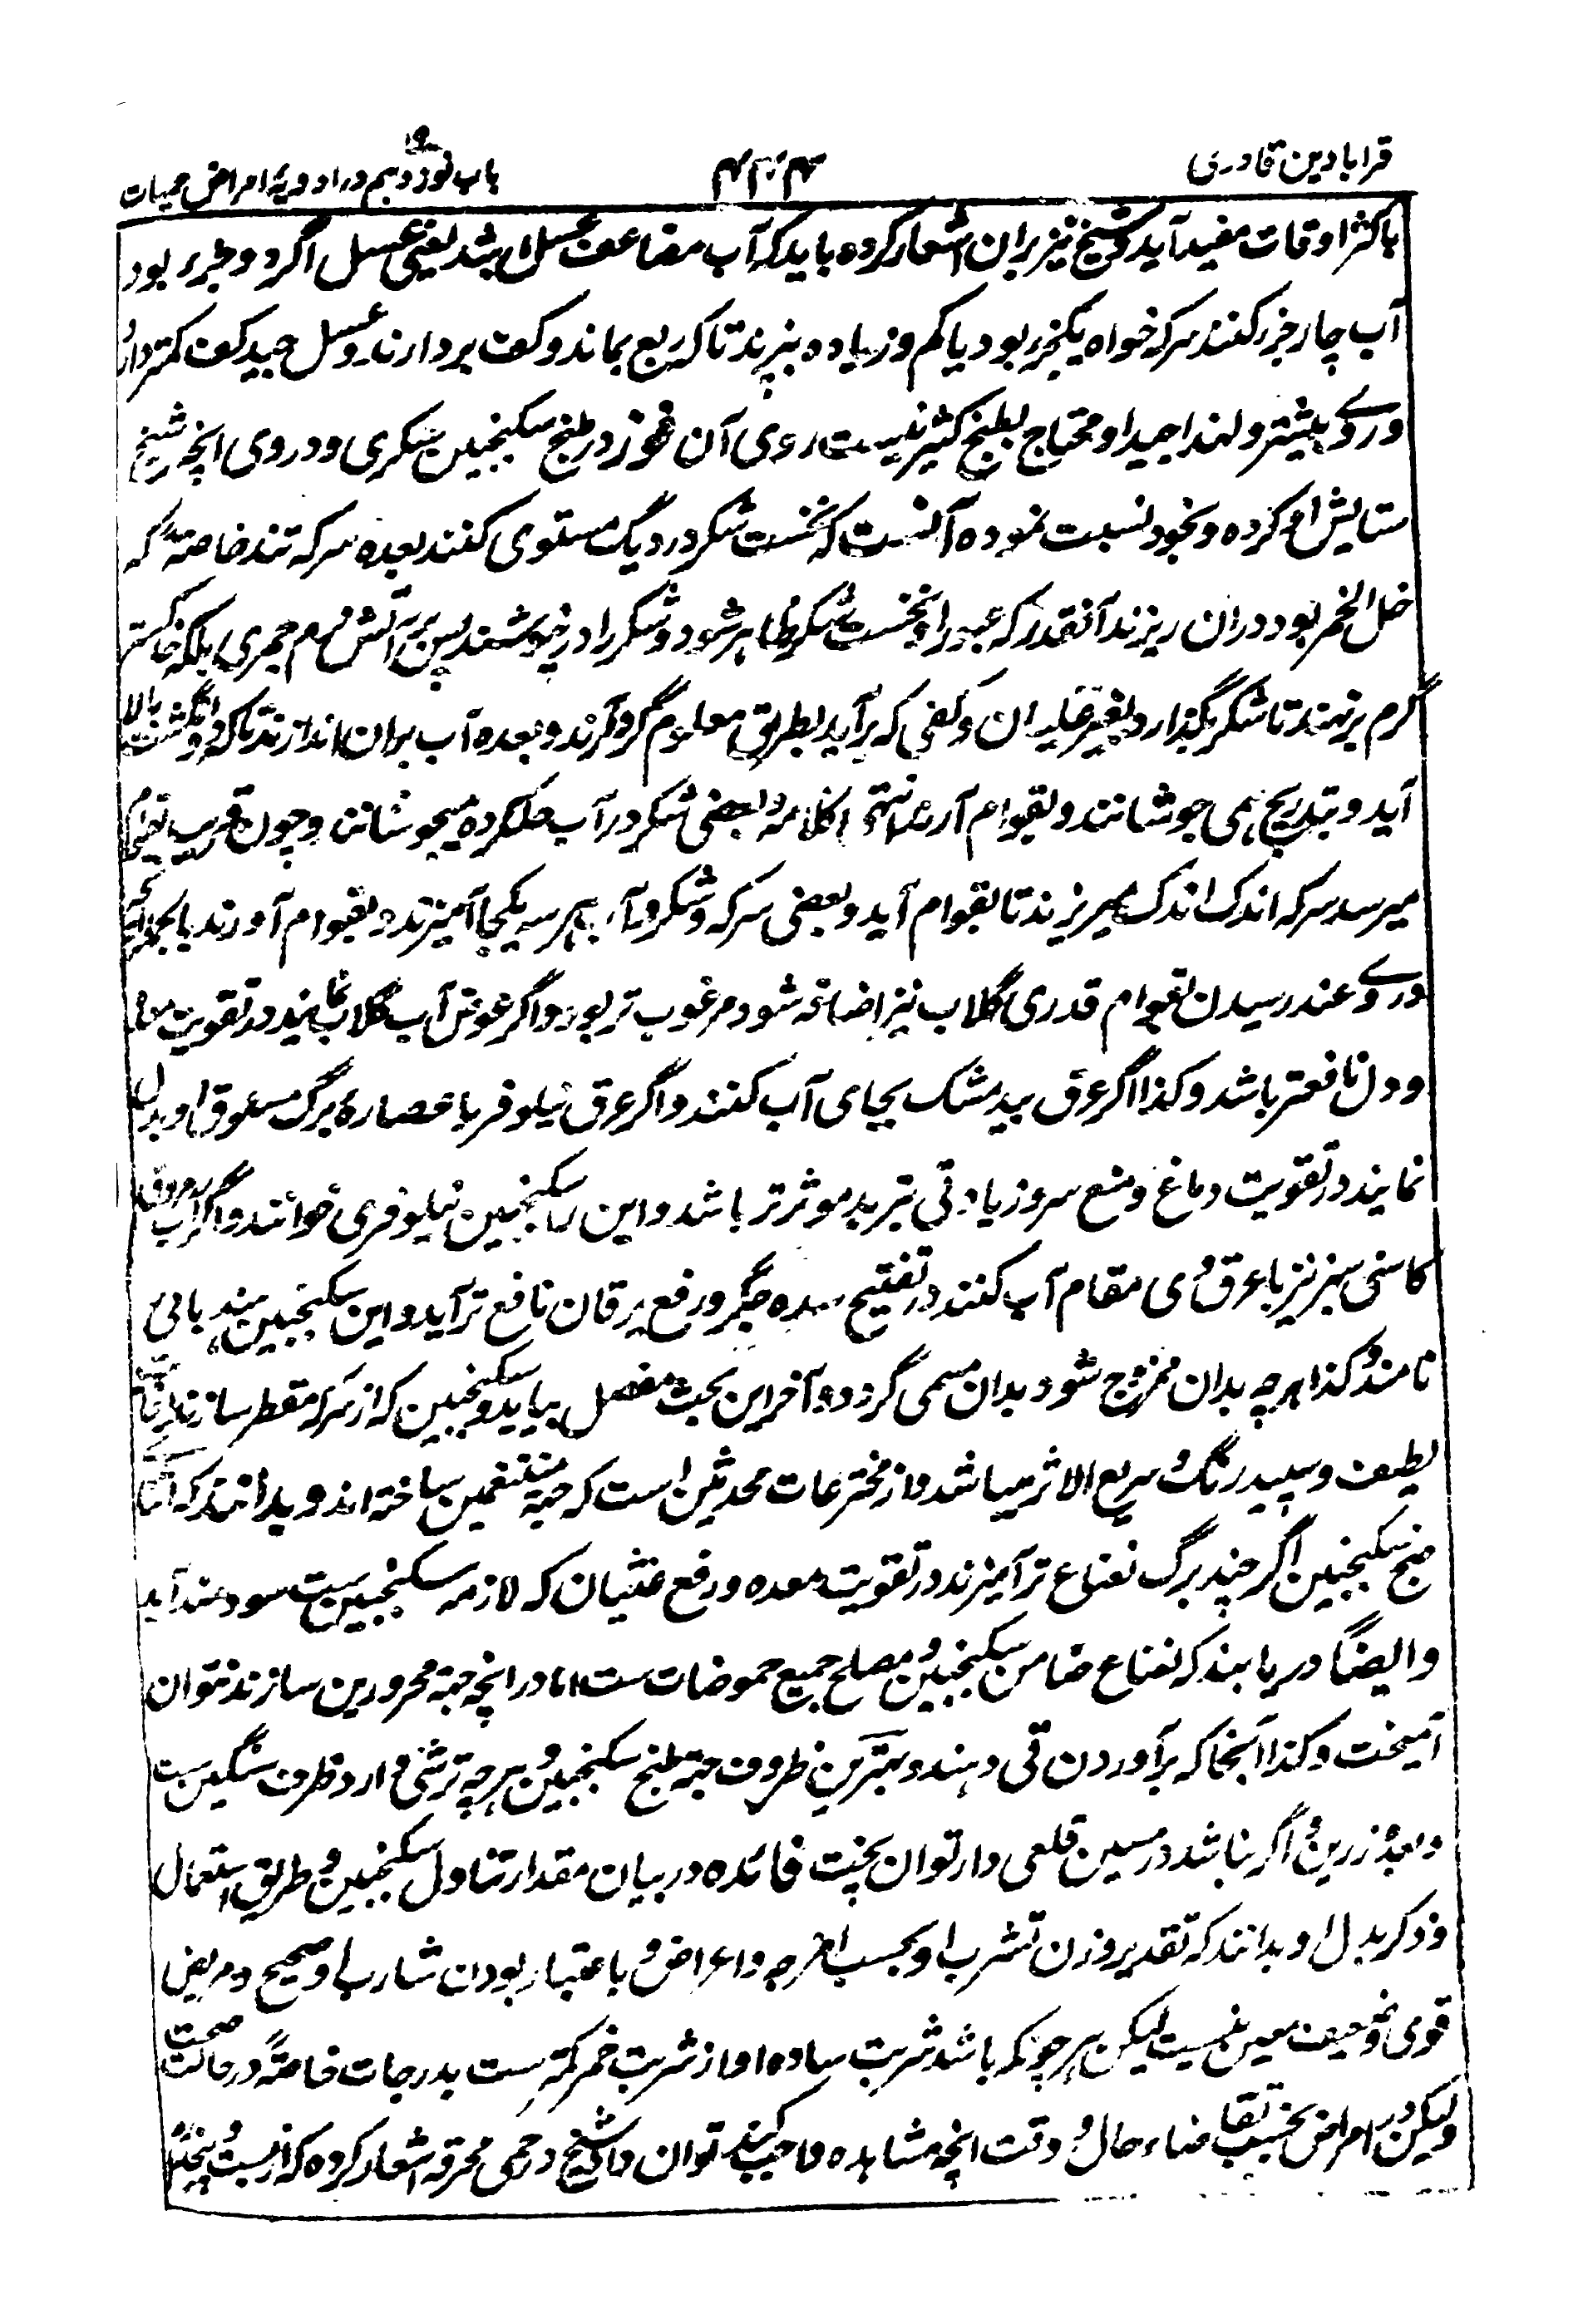 قرابادین قادری ۴۳۴ باب نوزدہم در ادویۂ امراض حمیات
باکثر اوقات مفید آید و شیخ نیز بران اشعار کردہ باید کہ آب مضاعف عسل باشد یعنی عسل اگر دو جزر بود
آب چار جزر کنند سرکہ خواہ یکجزر بود یا کم و زیادہ بپزند تا کہ ربع بماند و کف بردارند و عسل جید کف کمتر دارد
و ردی بیشتر و لہذا جید او محتاج بطبخ کثیر نیست ردی آن و نوز در طبخ سکنجبین شکری و ردی انچہ شیخ
ستایش او کردہ و بخود نسبت نمودہ آنست کہ نخست شکر در دیگ مستوی کنند بعدہ سرکہ تند خاصتہ کہ
خل الخمر بود دران ریزند آنقدر کہ شکر ظاہر شود و شکر را در پوشند پس بر آتش نرم جمری بلکہ خاکستر
گرم بر نہند تا شکر بگذارد بغیر غلیان و کفی کہ برآید بطریق معلوم گرد آرند و بعدہ آب بران اندازند تا کہ دو انگشت بالا
آید و بتدریج ہمی جوشانند و بقوام آرند انتہی کلامہ و بعضی شکر در آب حلکردہ میجوشانند و چون قریب بقوام
میرسد سرکہ اندک اندک میریزند تا بقوام آید و بعضی سرکہ و شکر و آب ہر سہ یکجا آمیزند و بقوام آورند
و عند رسیدن بقوام قدری گلاب نیز اضافہ شود مرغوب تر بود و اگر عوض آب گلاب نمایند در تقویت معدہ
و دل نافعتر باشد و کذا اگر عرق بید مشک بجای آب کنند و اگر عرق نیلوفر یا عصارۂ برگ مسحوق او بدل
نمایند در تقویت دماغ و منع سہر و زیادتی تبرید موثر تر باشد و این را سکنجبین نیلوفری خوانند و اگر آب
کاسنی سبز نیز یا عرق وی مقام آب کنند در تفتیح سدہ جگر و رفع یرقان نافع تر آید و این سکنجبین ہندبائی
نامند و کذا ہرچہ بدان ممزوج شود بدان مسمی گردد و آخر این بحث مفصل بیاید و سکنجبین کہ از سرکہ مقطر سازند
لطیف و سپید رنگ و سریع الاثر میباشد و از مخترعات محدثین است کہ جہۃ متنعمین ساختہ اند و بدانند کہ اثنای
طبخ سکنجبین اگر چند برگ نعناع تر آمیزند در تقویت معدہ و رفع غثیان کہ لازمہ سکنجبین ست سودمند آید
و ایضاً دریابند کہ نعناع ضامن سکنجبین و مصلح جمیع حموضات ست اما در انچہ جہۃ محرورین سازند نتوان
آمیخت و کذا آنجا کہ برآوردن قی دہند و بہترین ظروف جہۃ طبخ سکنجبین و ہرچہ ترشی دارد ظرف سنگین ست
و بعدہ زرین و اگر نباشد در مسین قلعی دار توان پخت فائدہ در بیان مقدار تناول سکنجبین و طریق استعمال
و ذکر بدل او بدانند کہ تقدیر وزن تشرب او بحسب امزجہ و اعراض و باعتبار بودن شارب او صحیح و مریض
قوی و نحیف معین نیست لیکن ہرچونکہ باشد شربت سادہ او از شربت خمر کمتر ست بدرجات خاصۃً در حالت صحت
ولیکن در امراض بحسب تقاضاء حال و وقت انچہ مشاہدہ واجب کند توان داد شیخ در حمی محرقہ اشعار کردہ کہ از بست و پنج